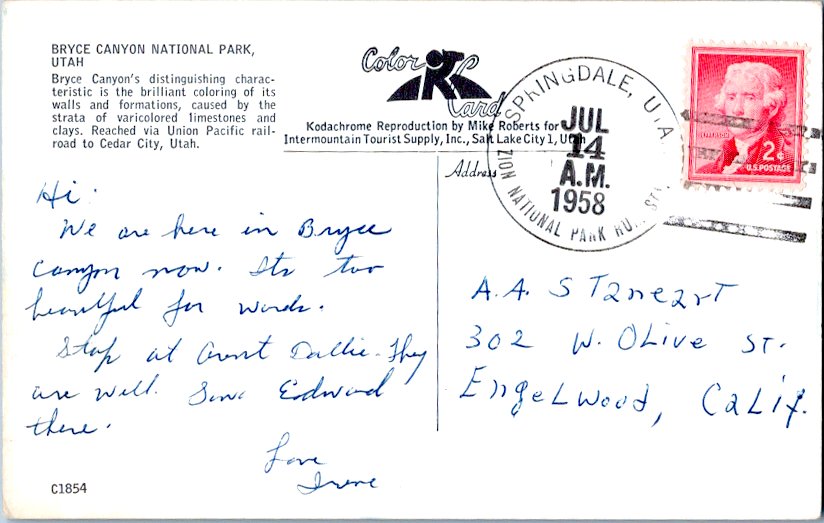 BRYCE CANYON NATIONAL PARK,
UTAH
Bryce Canyon's distinguishing charac-
teristic is the brilliant coloring of its
walls and formations, caused by the
strata of varicolored limestones and
clays. Reached via Union Pacific rail-
road to Cedar City, Utah.
Color
Card
Kodachrome Reproduction by Mike Roberts for
Intermountain Tourist Supply, Inc., Salt Lake City 1, Utah
Address
SPRINGDALE, UTA
JUL
14
A.M.
1958
ZION NATIONAL PARK RU. STA
JEFFERSON
2¢
U.S. POSTAGE
Hi.
We are here in Bryce
Canyon now. Its too
beautiful for words.
Stop at Aunt Dollie. They
are well. Edward
there.
Love
Irene
A.A. STaneart
302 W. Olive ST.
Engelwood, Calif.
C1854